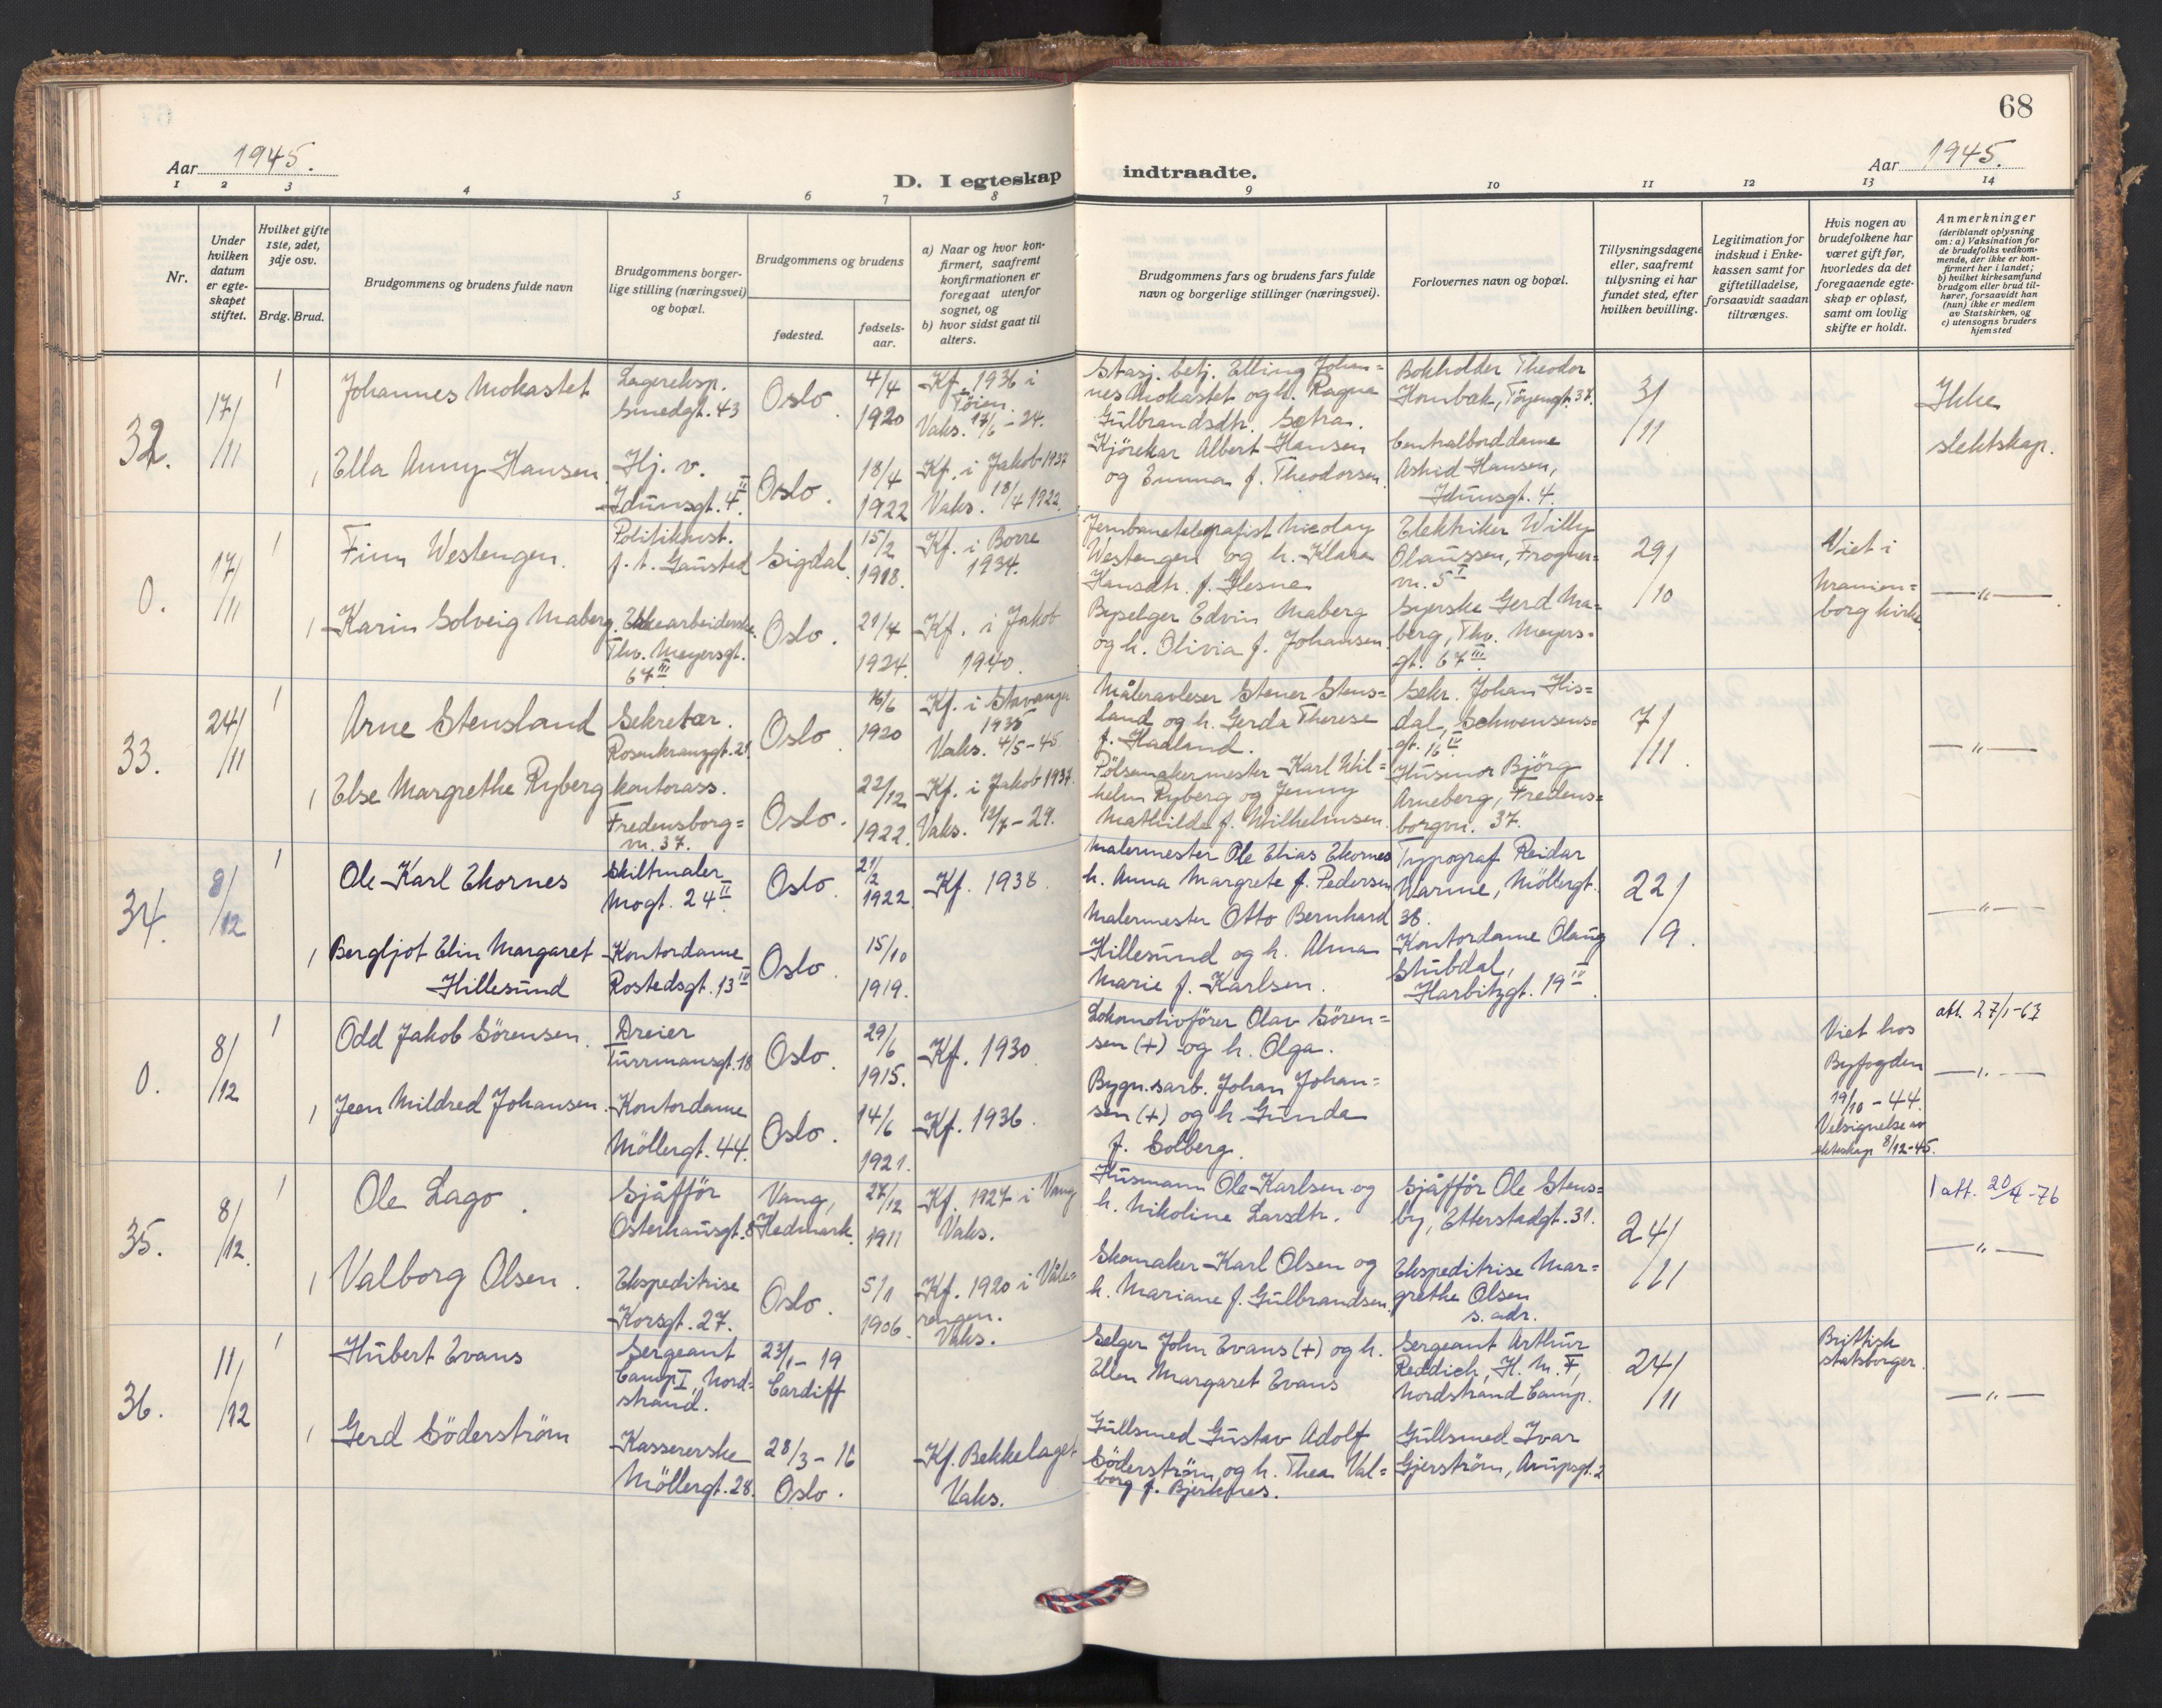 68
Aar 1945.
D. I egteskap indtraadte.
Aar 1945.
1 2 3 4 5 6 7 8 9 10 11 12 13 14
Nr.
Under hvilken datum er egteskapet stiftet.
Hvilket gifte 1ste, 2det, 3dje osv.
Brdg. Brud.
Brudgommens og brudens fulde navn
Brudgommens borgerlige stilling (næringsvei) og bopæl.
Brudgommens og brudens
fødested.
fødselsaar.
a) Naar og hvor konfirmert, saafremt konfirmationen er foregaat utenfor sognet, og
b) hvor sidst gaat til alters.
Brudgommens fars og brudens fars fulde navn og borgerlige stillinger (næringsvei).
Forlovernes navn og bopæl.
Tillysningsdagene eller, saafremt tillysning ei har fundet sted, efter hvilken bevilling.
Legitimation for indskud i Enkekassen samt for giftetilladelse, forsaavidt saadan tiltrænges.
Hvis nogen av brudefolkene har været gift før, hvorledes da det foregaaende egteskap er opløst, samt om lovlig skifte er holdt.
Anmerkninger
(deriblandt oplysning om: a) Vaksination for de brudefolks vedkommende, der ikke er konfirmert her i landet; b) hvilket kirkesamfund brudgom eller brud tilhører, forsaavidt han (hun) ikke er medlem av Statskirken, og c) utensogns bruders hjemsted
32.
17/11
1
Johannes Mokastet
Lagereksp.
Smedgt. 43
Oslo.
4/4
1920
Kf. 1936 i
Tøien.
Vaks. 17/6 - 24.
Stasj. betj. Elling Johan=
nes Mokastet og h. Ragna
Gulbrandsdtr. Sætra.
Bokholder Theodor
Hornbæk, Töyengt. 37.
3/11
Ikke
slektskap.
1
Ella Anny Hansen
Hj. v.
Idunsgt. 4 II
Oslo.
18/4
1922
Kf. i Jakob 1937
Vaks. 18/4 1922.
Kjörekar Albert Hansen
og Emma f. Theodorsen.
Centralborddame
Astrid Hansen,
Idunsgt. 4.
0.
17/11
1
Finn Westengen.
Politikonst.
f. t. Gaustad
Sigdal.
15/2
1918.
Kf. i Borre
1934.
Jernbanetelegrafist Nicolay
Westengen og h. Klara
Hansdtr. f. Glesne
Elektriker Willy
Olaussen, Frogner=
vn. 5 I
29/10
Viet i
Uranien=
borg kirke
— " —
1
Karin Solveig Maberg.
Eskearbeiderske.
Thv. Meyersgt.
67 III
Oslo.
21/4
1924.
Kf. i Jakob
1940.
Byselger Edvin Maberg
og h. Olivia f. Johansen.
Syerske Gerd Ma=
berg, Thv. Meyers=
gt. 67 III
33.
24/11
1
Arne Stensland
Sekretær.
Rosenkranzgt. 21.
Oslo.
16/6
1920
Kf. i Stavanger
1935
Vaks. 4/5 - 45
Måleravleser Stener Stens=
land og h. Gerda Therese
f. Hadland.
Sekr. Johan His=
dal, Schwensens=
gt. 16 IV
7/11.
— " —
1
Else Margrethe Ryberg
Kontorass.
Fredensborg=
vn. 37.
Oslo.
22/12
1922.
Kf. i Jakob 1937.
Vaks. 12/7 - 29.
Pölsemakermester Karl Wil=
helm Ryberg og Jenny
Mathilde f. Wilhelmsen.
Husmor Björg
Arneberg, Fredens=
borgvn. 37.
34.
8/12
1
Ole Karl Ekornes
Skiltmaler
Mogt. 24 II
Oslo.
21/2
1922.
Kf. 1938.
Malermester Ole Elias Ekornes
h. Anna Margrete f. Pedersen
Typograf Reidar
Warme, Möllergt.
38.
22/9.
— " —
1
Bergljot Elin Margaret
Hillesund
Kontordame
Rostedsgt. 13 IV
Oslo.
15/10
1919.
Malermester Otto Bernhard
Hillesund og h. Alma
Marie f. Karlsen.
Kontordame Olaug
Stubdal,
Harbitzgt. 19 IV.
0.
8/12
1
Odd Jakob Sörensen.
Dreier
Turrmansgt. 18
Oslo.
29/6
1915.
Kf. 1930
Lokomotivförer Olav Sören=
sen (+) og h. Olga.
Viet hos
Byfogden
19/10 - 44.
Velsignelse av
ekteskap 8/12-45.
att. 27/1-63
— " —
1
Jeen Mildred Johansen.
Kontordame
Möllergt. 44.
Oslo.
14/6
1921.
Kf. 1936.
Bygn.sarb. Johan Johan=
sen (+) og h. Gunda
f. Solberg.
35.
8/12.
1
Ole Lago.
Sjåfför
Osterhausgt. 8
Vang,
Hedmark.
27/12
1911
Kf. 1927 i Vang
Vaks.
Husmann Ole Karlsen og
h. Nikoline Larsdtr.
Sjåfför Ole Stens=
by, Etterstadgt. 31.
24/11
1 att. 20/4-76
— " —
1
Valborg Olsen.
Ekspeditrise
Korsgt. 27.
Oslo.
5/1
1906.
Kf. 1920 i Våle=
rengen.
Vaks.
Skomaker Karl Olsen og
h. Mariane f. Gulbrandsen.
Ekspeditrise Mar=
grethe Olsen
s. adr.
36.
11/12
1
Hubert Evans
Sergeant
Camp I, Nord=
strand.
23/1 - 19
Cardiff
Selger John Evans (+) og h.
Ellen Margaret Evans
Sergeant Arthur
Reddich, H. M. F,
Nordstrand Camp.
24/11
Brittisk
statsborger.
— " —
1
Gerd Söderström
Kassererske
Möllergt. 28.
28/3 - 16
Oslo.
Kf. Bekkelaget
Vaks.
Gullsmed Gustav Adolf
Söderström og h. Thea Val=
borg f. Bjerknes.
Gullsmed Ivar
Gjerström, Arupsgt. 2